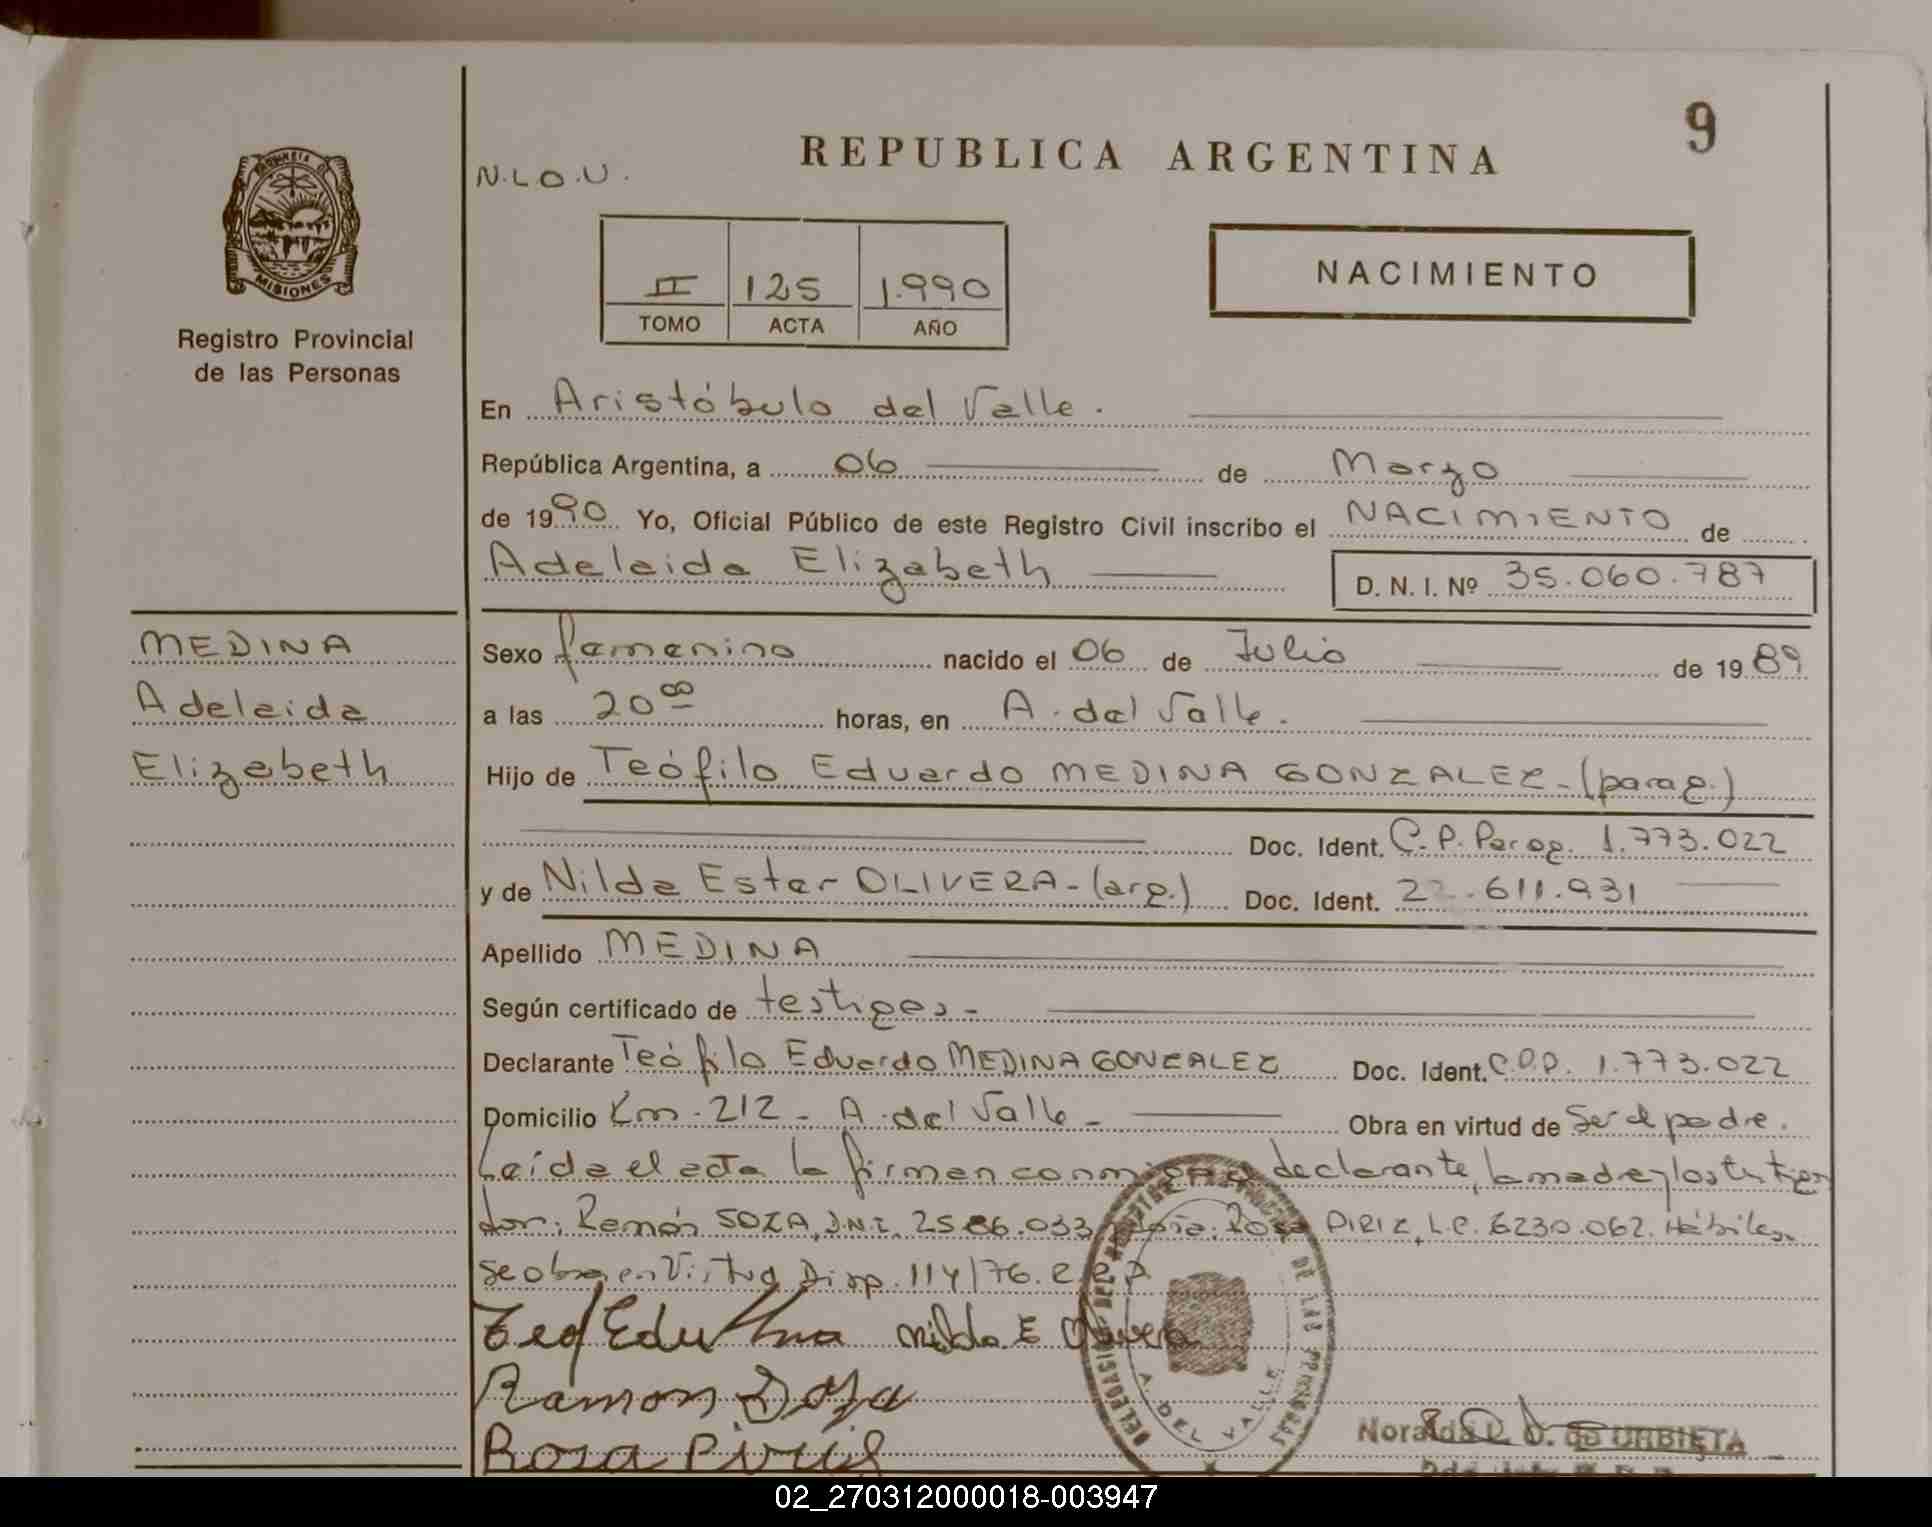 9
REPUBLICA ARGENTINA
N.L.O.U.
MISIONES
Registro Provincial
de las Personas
II 125 1.990
TOMO ACTA AÑO
NACIMIENTO
En Aristóbulo del Valle.
República Argentina, a 06 de Marzo
de 1990 Yo, Oficial Público de este Registro Civil inscribo el NACIMIENTO de
Adelaida Elizabeth D. N. I. Nº 35.060.787
MEDINA
Adelaida
Elizabeth
Sexo femenino nacido el 06 de Julio de 1989
a las 20 00 horas, en A. del Valle.
Hijo de Teófilo Eduardo MEDINA GONZALEZ - (parag.)
Doc. Ident. C.P. Parag. 1.773.022
y de Nilda Ester OLIVERA - (arg.) Doc. Ident. 22.611.931
Apellido MEDINA
Según certificado de testigos -
Declarante Teófilo Eduardo MEDINA GONZALEZ Doc. Ident. C.P.P. 1.773.022
Domicilio Km. 212 - A. del Valle - Obra en virtud de Ser el padre.
Leída el acta la firman conmigo declarante, la madre y los testigos
don: Ramón SOZA, D.N.I. 2586.033 doña: Rosa PIRIZ, L.C. 6230.062. Hábiles
se obra en Virtud Disp. 114/76. R.P.P.
Teof Edu nilda E Olivera
Ramon Soza
Rosa Piris
DELEGACION DEL REGISTRO PROVINCIAL DE LAS PERSONAS
A. DEL VALLE
Noralda D. de URBIETA
02_270312000018-003947